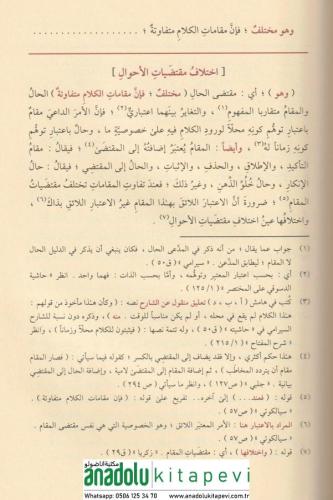 وهو مختلفٌ ؛ فإنَّ مقاماتِ الكلامِ متفاوتةٌ ؛ . . . . . . . . . . . . . . . . . . . .
[ اختلافُ مقتضَياتِ الأحوالِ ]
( وهو ) ؛ أي : مقتضى الحالِ ( مختلفٌ ؛ فإنَّ مقاماتِ الكلامِ متفاوتةٌ ) الحالُ
والمقامُ متقاربا المفهومِ(١) ، والتغايرُ بينَهما اعتباريٌّ(٢) ؛ فإنَّ الأمرَ الداعيَ مقامٌ
باعتبارِ توهُّمِ كونِهِ محلّاً لورودِ الكلامِ فيهِ على خصوصيَّةٍ ما ، وحالٌ باعتبارِ توهُّمِ
كونِهِ زماناً لهُ(٣) ، وأيضاً : المقامُ يُعتبَرُ إضافتُهُ إلى المقتضى(٤) ؛ فيقالُ : مقامُ
التأكيدِ ، والإطلاقِ ، والحذفِ ، والإثباتِ ، والحالُ إلى المقتضي ؛ فيقالُ : حالُ
الإنكارِ ، وحالُ خُلُوِّ الذِّهنِ ، وغيرُ ذلكَ ؛ فعندَ تفاوتِ المقاماتِ تختلفُ مقتضَياتُ
المقامِ(٥) ؛ ضرورةَ أنَّ الاعتبارَ اللائقَ بهذا المقامِ غيرُ الاعتبارِ اللائقِ بذاكَ(٦) ،
واختلافُها عينُ اختلافِ مقتضَياتِ الأحوالِ(٧) .
(١) جواب عما يقال : من أنه ذكر في المدَّعىٰ الحال ، فكان ينبغي أن يذكر في الدليل الحال
لا المقام ؛ ليطابق المدعىٰ . « سيرامي » ( ق٥٠ ) .
(٢) أي : بحسب اعتبار المعتبر وتوهُّمه ، وأمَّا بحسب الذات : فهما واحد . انظر « حاشية
الدسوقي على المختصر » ( ١/١٢٥ ) .
(٣) كُتب في هامش ( أ ، ب ، د ) تعليق منقول عن الشارح نصه : ( وكأن هذا مأخوذ من قولهم :
هذا الكلامُ لم يقع في محله ، أو لم يكن مناسباً للوقت . منه ) ، وذكره دون نسبة للشارح
السيرامي في « حاشيته » ( ق٥٠ ) ، وله تتمة نصها : ( فيثبتون للكلام محلاً وزماناً ) ، وانظر
« شرح المفتاح » ( ١/١٢٥ ) .
(٤) هذا حكم أكثري ، وإلا فقد يضاف إلى المقتضي بالكسر ؛ كقوله فيما سيأتي : ( فصار المقام
مقام أن يتردد المخاطَب ) ، ثم إضافة المقام إلى المقتضىٰ لامية ، وإضافة الحال إلى المقتضي
بيانية . « جلبي » ( ص١٢٧ ) ، وانظر ما سيأتي ( ص٢٩٤ ) .
(٥) قوله : ( فعند ) إلىٰ آخره . . تفريع علىٰ قوله : ( فإن مقامات الكلام متفاوتة ) .
« سيالكوتي » ( ص٥٧ ) .
(٦) المراد بالاعتبار هنا : الأمر المعتبَر اللائق ، وهو الخصوصية التي هي نفس مقتضى المقام .
« سيالكوتي » ( ص٥٧ ) .
(٧) قوله : ( واختلافها ) ، أي : مقتضيات المقام . « زكريا » ( ق٢٩ ) .
مكتبة الأناضولو
anadolukitapevi
Whatsapp: 0506 125 34 70
www.anadolukitapevi.com